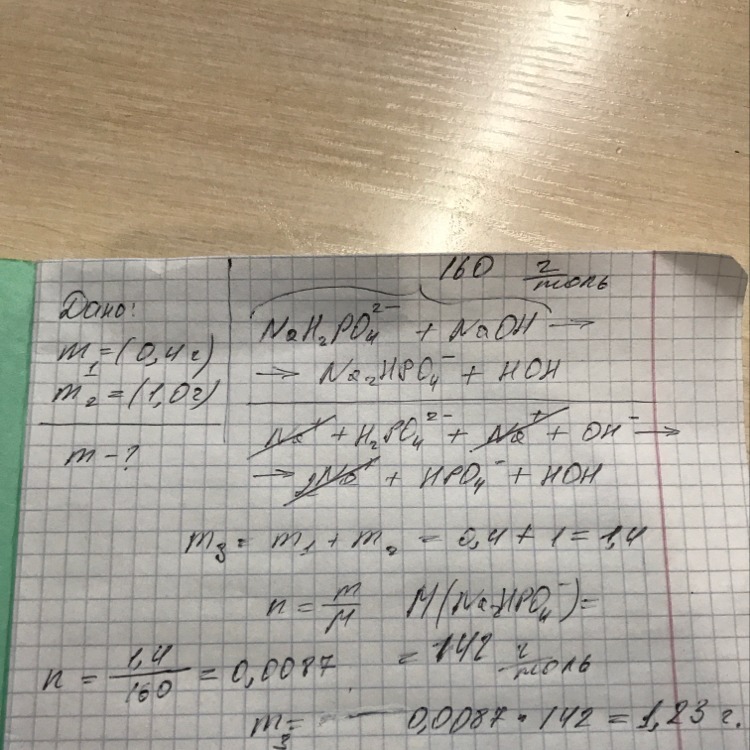 160 г/моль
Дано:
m₁ = (0,4 г)
m₂ = (1,0 г)
m - ?
NaH₂PO₄²⁻ + NaOH →
→ Na₂HPO₄⁻ + HOH
Na⁺ + H₂PO₄²⁻ + Na⁺ + OH⁻ →
→ 2Na⁺ + HPO₄⁻ + HOH
m₃ = m₁ + m₂ = 0,4 + 1 = 1,4
n = m/M M(Na₂HPO₄⁻) =
n = 1,4/160 = 0,0087 = 142 г/моль
m₃ = 0,0087 · 142 = 1,23 г.